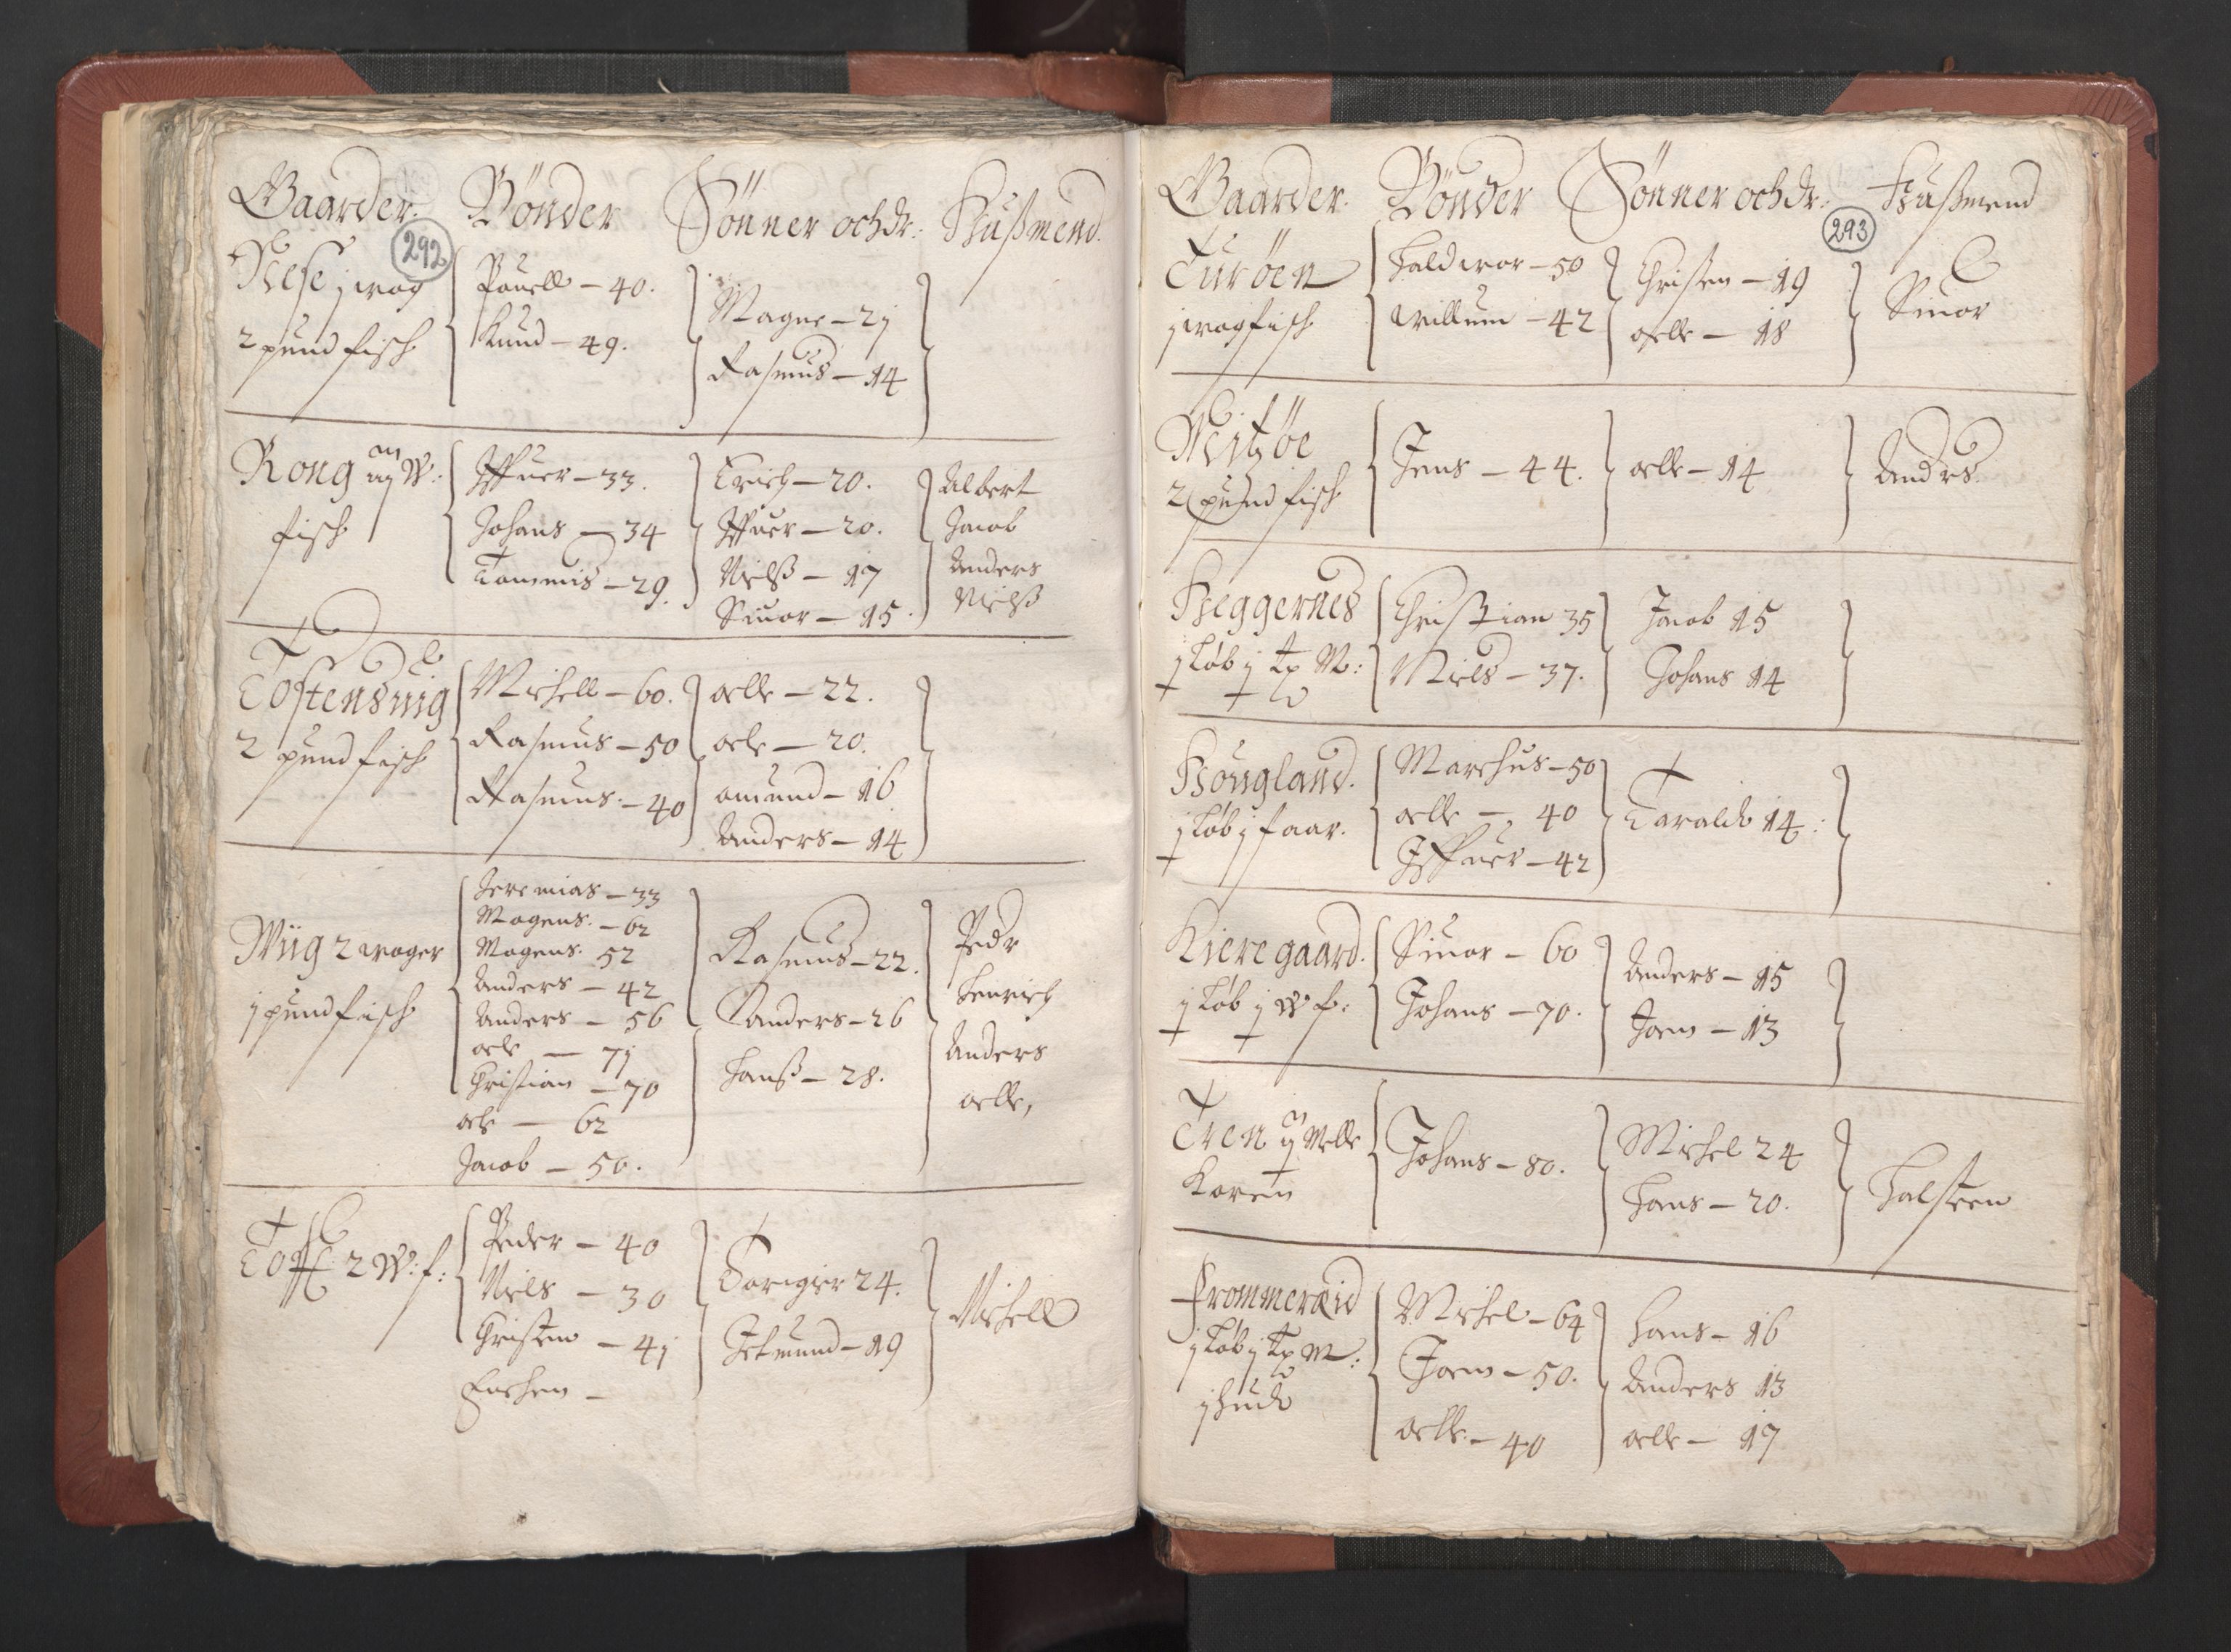 Gaarder. Bönder Sönner och dr: Hußmend.
292
Nese j wog
2 pund fisch
Pouell - 40.
Knud - 49.
Magne - 2j
Rasmus - 14
Rong W:
fisch
Iffuer - 33.
Johans - 34
Tommis - 29.
Erich - 20.
Iffuer - 20.
Nielß - 17
Siuor - 15.
Albert
Jacob
Anders
Nielß
Tostensuig
2 pund fisch
Michell - 60.
Rasmus - 50
Rasmus - 40
olle - 22.
ole - 20.
omund - 16
Anders - 14
Wiig 2 woger
j pund fisch
Jeremias - 33
Mogens - 62
Mogens. 52
Anders - 42
Anders - 56
ole - 7j
Christian - 70
ole - 62
Jacob - 50.
Rasmus - 22.
Anders - 26
Hanß - 28.
Pedr
Henrich
Anders
olle,
Toft 2 W: f:
Peder - 40
Niels - 30
Christen - 4j
Torgier 24.
Jetmund - 19
Michell
Gaarder. Bönder Sönner och dr: Hußmend
293
Turöen
j wog fisch
Haldwor - 50
Willum - 42
Christen - 19
olle - 18
Siuor
2 pund fisch
Jens - 44.
olle - 14
Andrs.
Heggernes
j Löb j M:
Christian 35
Niels - 37.
Jacob 15
Johans 14
Hougland.
j Löb j faar.
Marchus - 50
olle - 40
Iffuer - 42
Taralds 14:
Kieregaard.
j Löb j W f:
Siuor - 60
Johans - 70.
Anders - 15
Joen - 13
Tren Melle
Koren
Johans - 80.
Michel 24
Hans - 20.
Halsteen
Frommereid
j Löb j M:
j hud
Michel - 64
Joen - 50.
olle - 40
Hans - 16
Anders 13
olle - 17